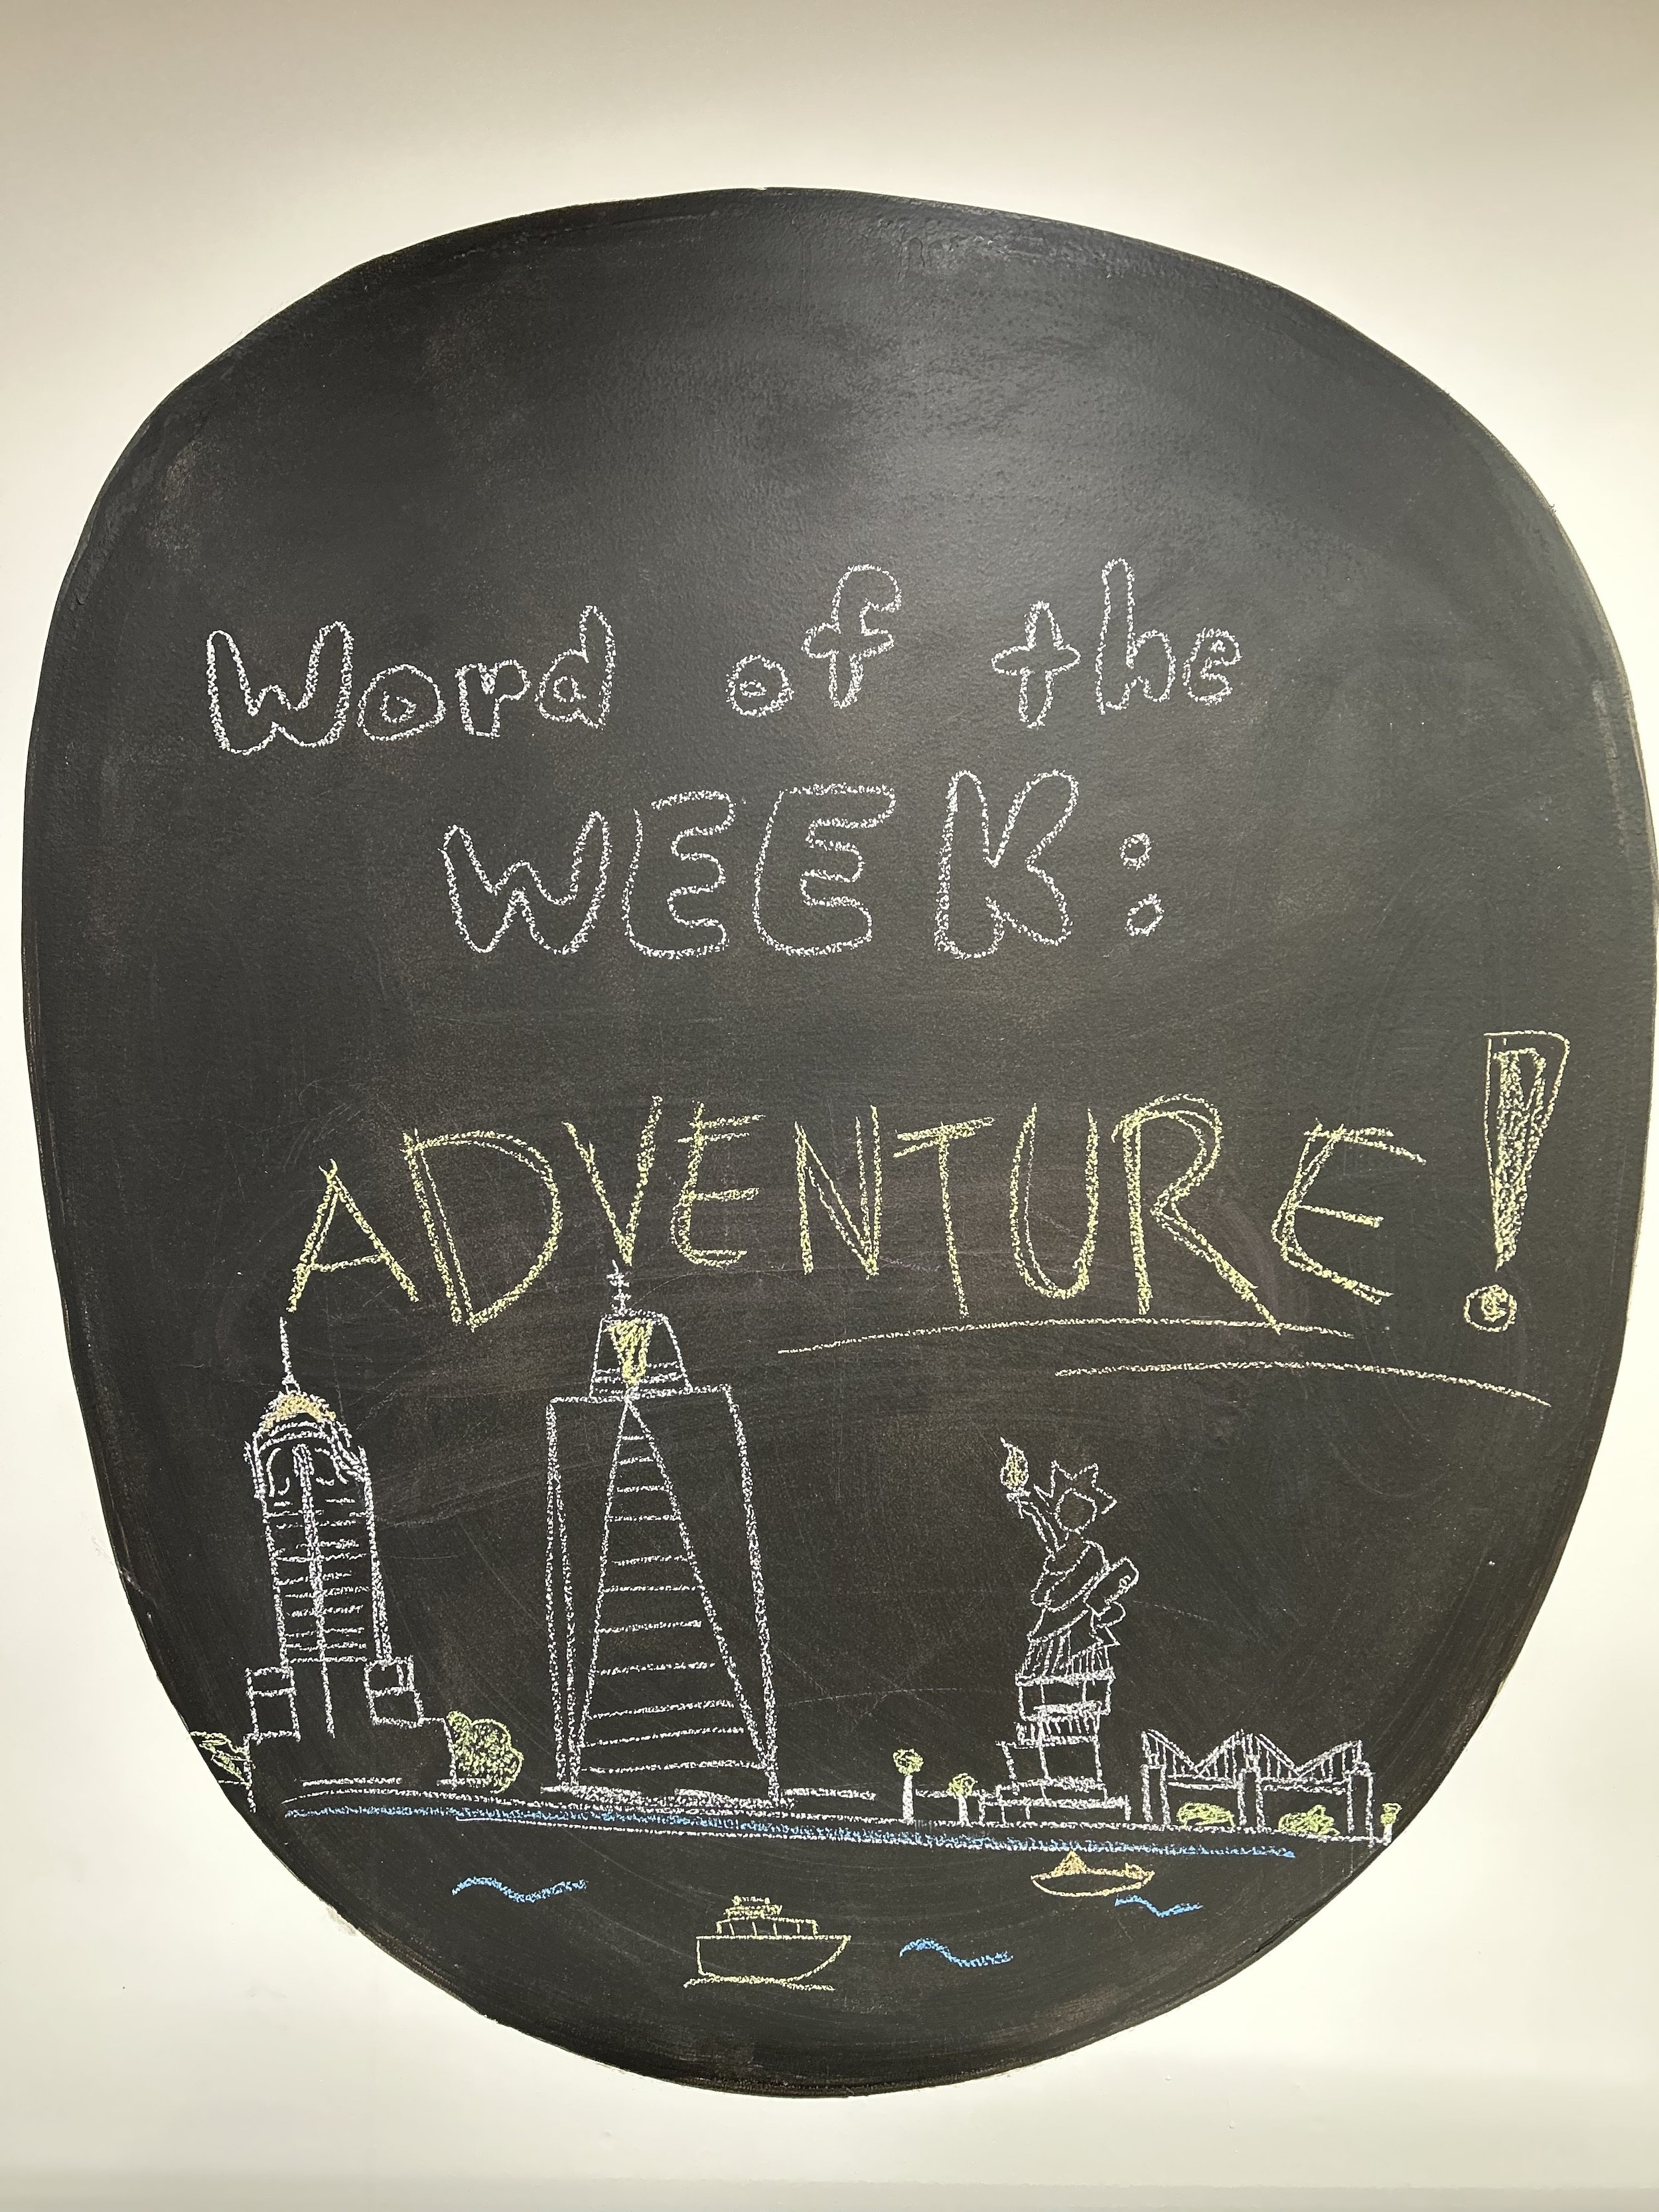 Word of the
WEEK:
ADVENTURE!